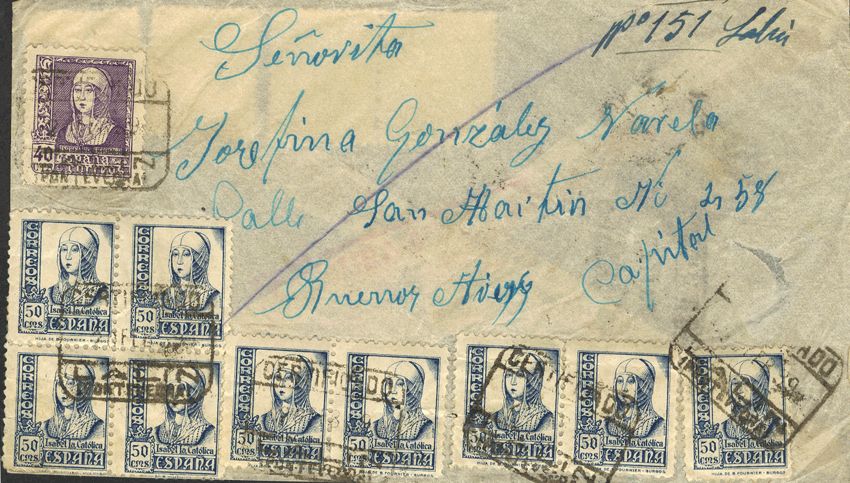 nº 151
Señorita
Josefina González Varela
Calle San Martin Nº 258
Buenos Aires Capital
40
CORREOS
50 CTMS
Isabel la Católica
ESPAÑA
CORREOS
50 CTMS
Isabel la Católica
ESPAÑA
CORREOS
50 CTMS
Isabel la Católica
ESPAÑA
CORREOS
50 CTMS
Isabel la Católica
ESPAÑA
CORREOS
50 CTMS
Isabel la Católica
ESPAÑA
CORREOS
50 CTMS
Isabel la Católica
ESPAÑA
CORREOS
50 CTMS
Isabel la Católica
ESPAÑA
CORREOS
50 CTMS
Isabel la Católica
ESPAÑA
CORREOS
50 CTMS
Isabel la Católica
ESPAÑA
HIJA DE B.FOURNIER - BURGOS
CERTIFICADO
PONTEVEDRA